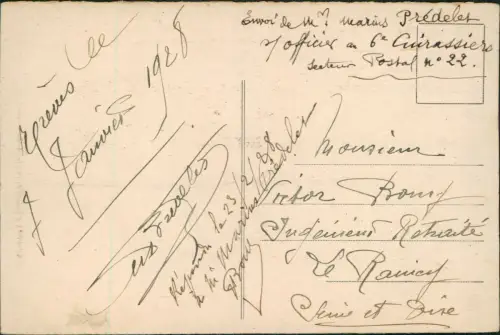 Envoi de Mr Marius Prédelet
s/officier au 6e Cuirassiers
Secteur Postal n° 22.
Trèves le
Janvier 1928
Répondu le 23/2/28
à Mr Marius Prédelet
Monsieur
Victor Bony
Ingénieur Retraité
Le Raincy
Seine et Oise